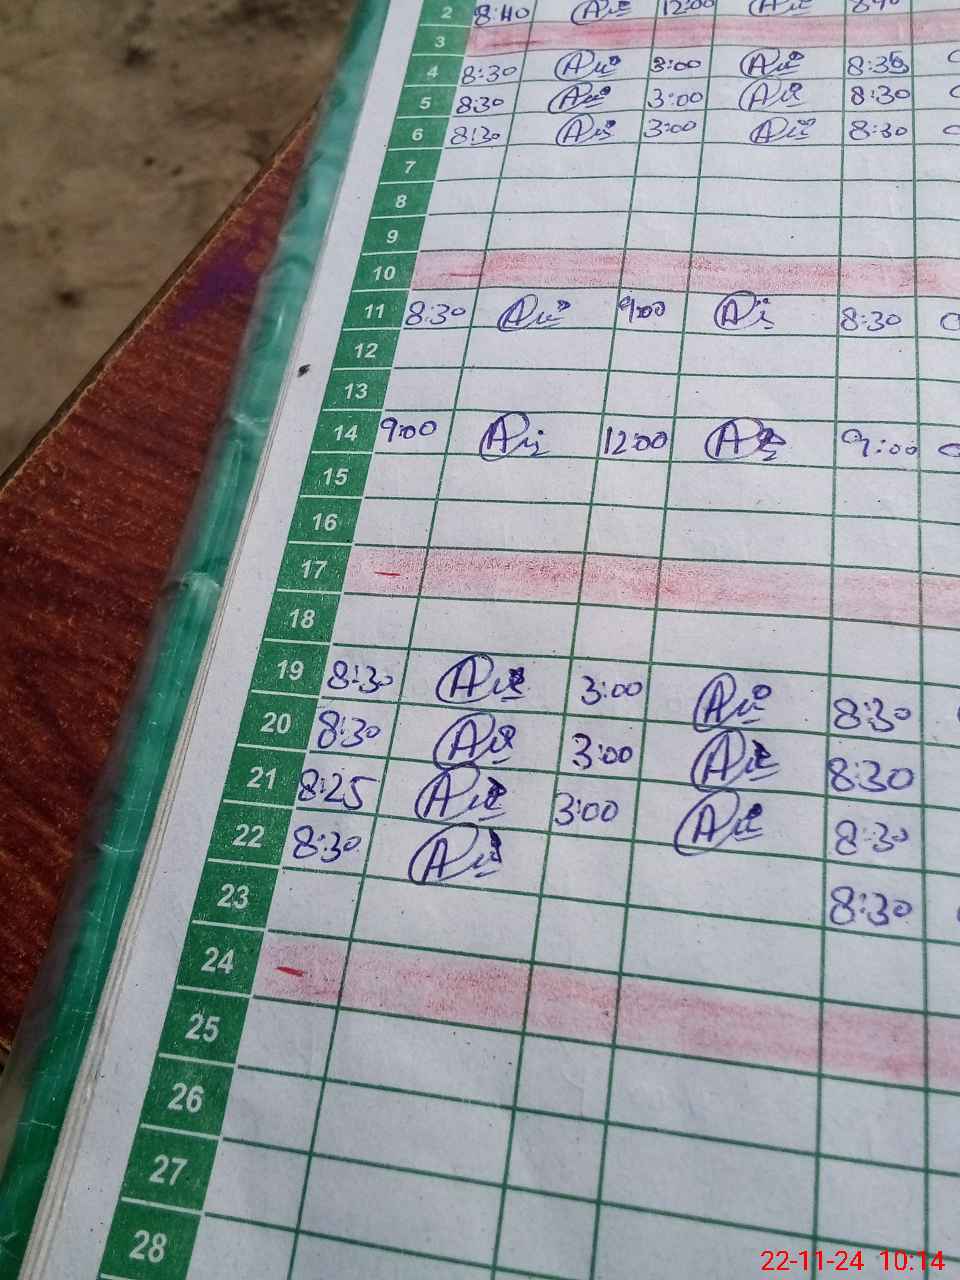 2 8:40 12:00 8:40
3
4 8:30 3:00 8:35
5 8:30 3:00 8:30
6 8:30 3:00 8:30
7
8
9
10
11 8:30 9:00 8:30
12
13
14 9:00 12:00 9:00
15
16
17 -
18
19 8:30 3:00 8:30
20 8:30 3:00 8:30
21 8:25 3:00 8:30
22 8:30 8:30
23
24 -
25
26
27
28
22-11-24 10:14